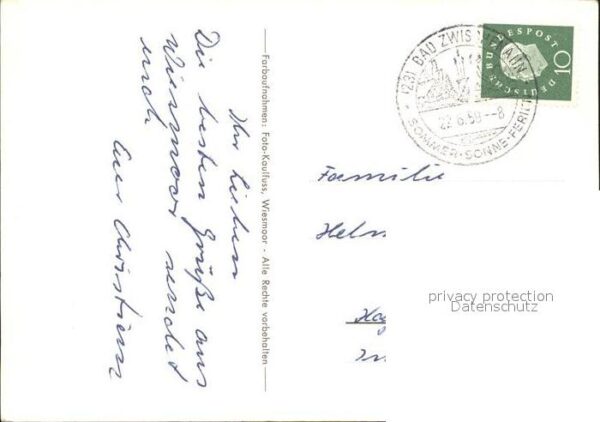 Ihr Lieben
Die besten Grüße aus
Wiesmoor sendet
euch
Euer Christian
Farbaufnahmen: Foto-Kauffuss, Wiesmoor - Alle Rechte vorbehalten
(23) BAD ZWISCHENAHN
22.6.59.--8
SOMMER·SONNE·FERIEN
DEUTSCHE BUNDESPOST
10
Familie
Helm
privacy protection
Datenschutz